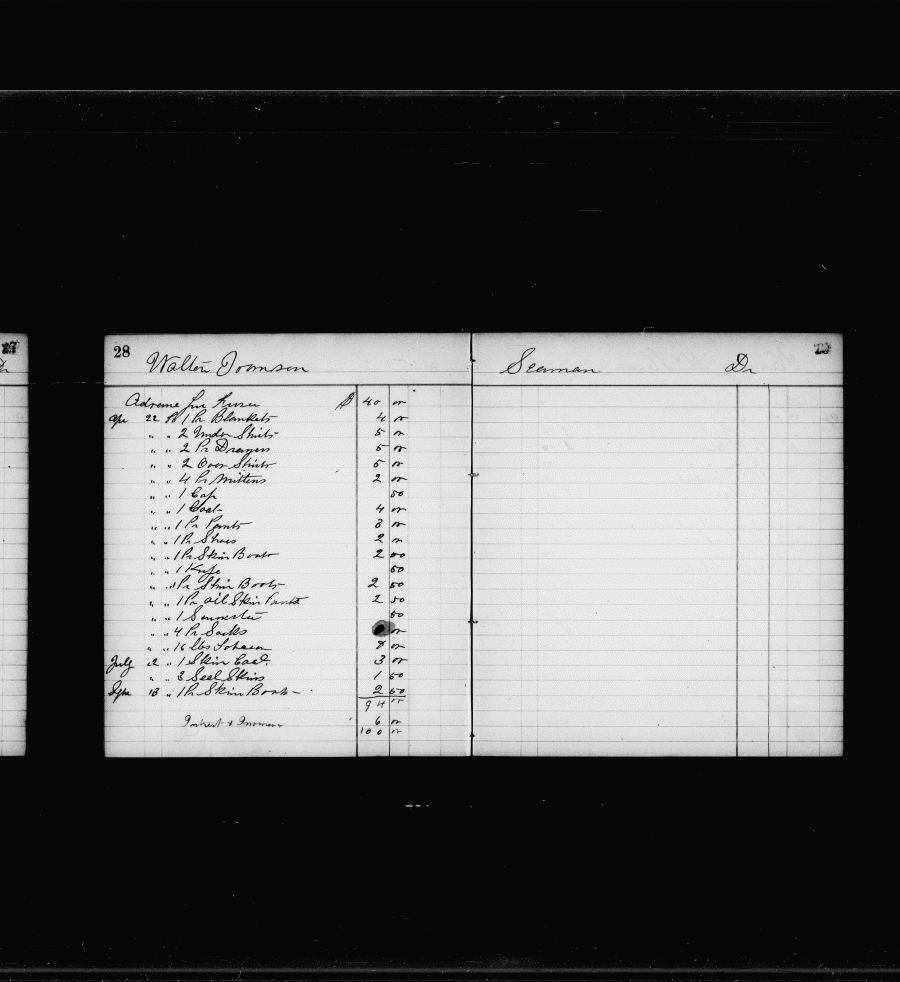 27
Dr
28
Walton Seaman Dr 29
$ 40 00
Apr 22 1 Pr Blankets 4 00
" " 2 Under Shirts 5 00
" " 2 Pr Drawers 5 00
" " 2 Over Shirts 5 00
" " 4 Pr Mittens 2 00
" " 1 Cap 50
" " 1 Coat 4 00
" " 1 Pr Pants 3 00
" " 1 Pr Shoes 2 00
" " 1 Pr Skin Boots 2 00
" " 1 Knife 50
" " 1 Pr Skin Boots 2 50
" " 1 Pr Oil Skin Pants 2 50
" " 1 Souwester 50
" " 4 Pr Socks 00
" " 16 lbs Tobacco 8 00
July 2 " 1 Skin Coat 3 00
" " 3 Seal Skins 1 50
18 " 1 Pr Skin Boots 2 50
94
Interest & Insurance 6 00
100 00